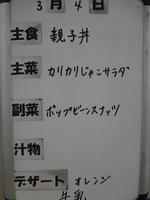 3月4日
主食 親子丼
主菜 カリカリじゃこサラダ
副菜 ポップビーンズナッツ
汁物
デザート オレンジ
牛乳